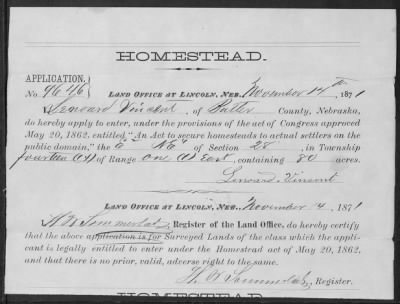 HOMESTEAD.
APPLICATION.
No. 9646
LAND OFFICE AT LINCOLN, NEB. November 14th 1871
I, Lenoard Vincent, of Butler County, Nebraska,
do hereby apply to enter, under the provisions of the act of Congress approved
May 20, 1862, entitled "An Act to secure homesteads to actual settlers on the
public domain," the of Section 28, in Township
fourteen (14) of Range One (1) East, containing 80 acres.
Lenoard Vincent
LAND OFFICE AT LINCOLN, NEB. November 14 1871
I, Register of the Land Office, do hereby certify
that the above application is for Surveyed Lands of the class which the appli-
cant is legally entitled to enter under the Homestead act of May 20, 1862,
and that there is no prior, valid, adverse right to the same.
Register.
HOMESTEAD